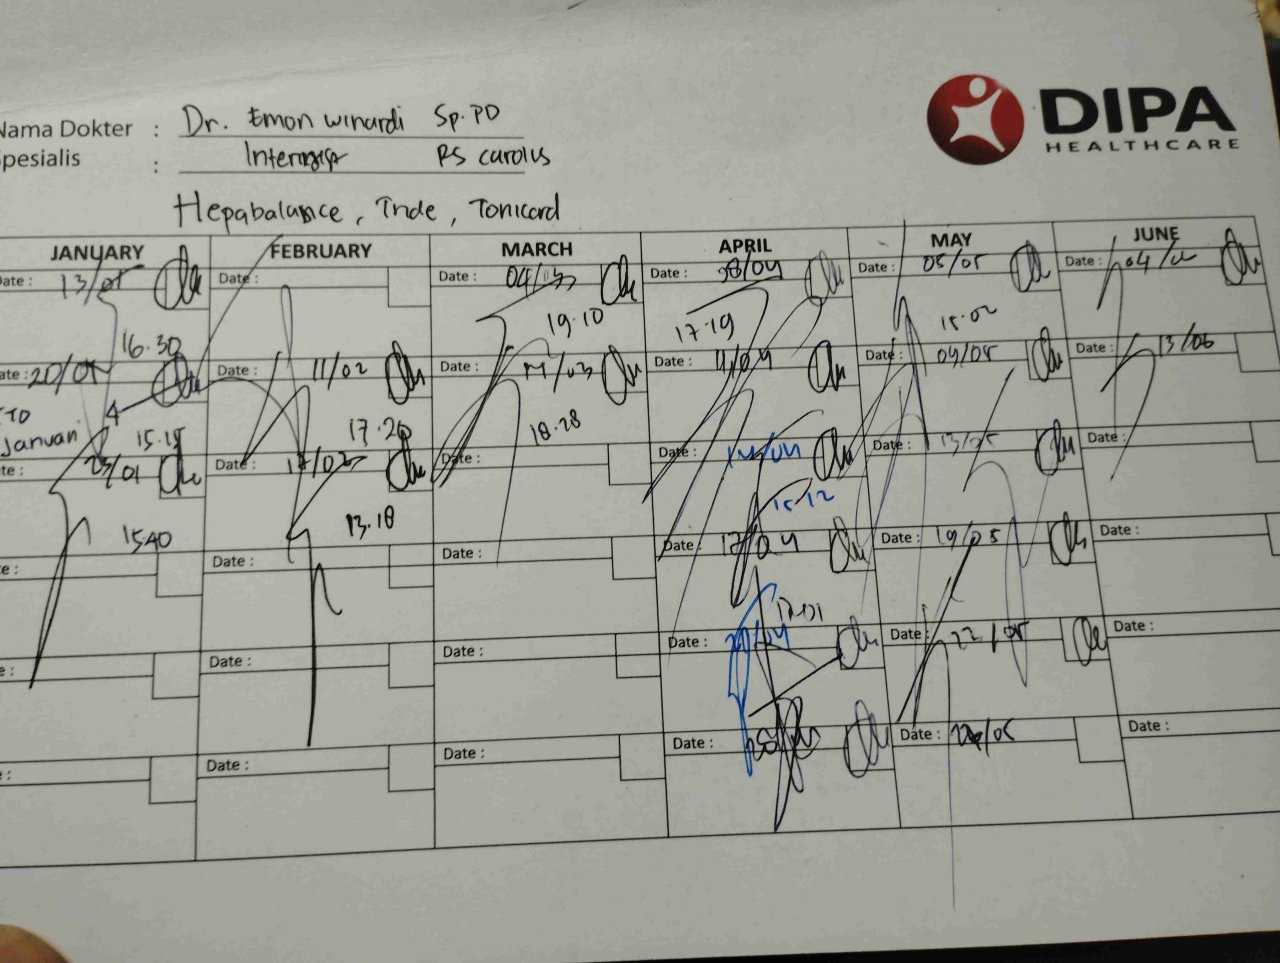 DIPA
HEALTHCARE
Nama Dokter : Dr. Emon Winardi Sp.PD
Spesialis : Internist RS Carolus
Hepabalance, Tonicard
JANUARY FEBRUARY MARCH APRIL MAY JUNE
Date : 13/01 Date : Date : 04/03 Date : 08/04 Date : 05/05 Date : 04/
16.30 19.10 17.19 15.02
Date : 20/01 Date : 11/02 Date : /03 Date : 11/04 Date : 09/05 Date : 13/06
Januari 15.15 17.20 18.28
Date : 23/01 Date : 17/02 Date : Date : 14/04 Date : 13/05 Date :
1540 13.18 15.12
Date : Date : Date : Date : 17/04 Date : 19/05 Date :
Date : Date : Date : Date : /04 Date : 22/05 Date :
Date : Date : Date : Date : Date : /05 Date :